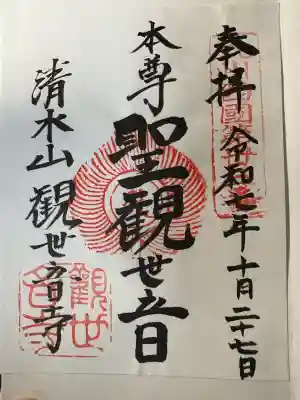 奉拝 令和七年十月二十七日
本尊 聖観世音
清水山 観世音寺
観世
音寺